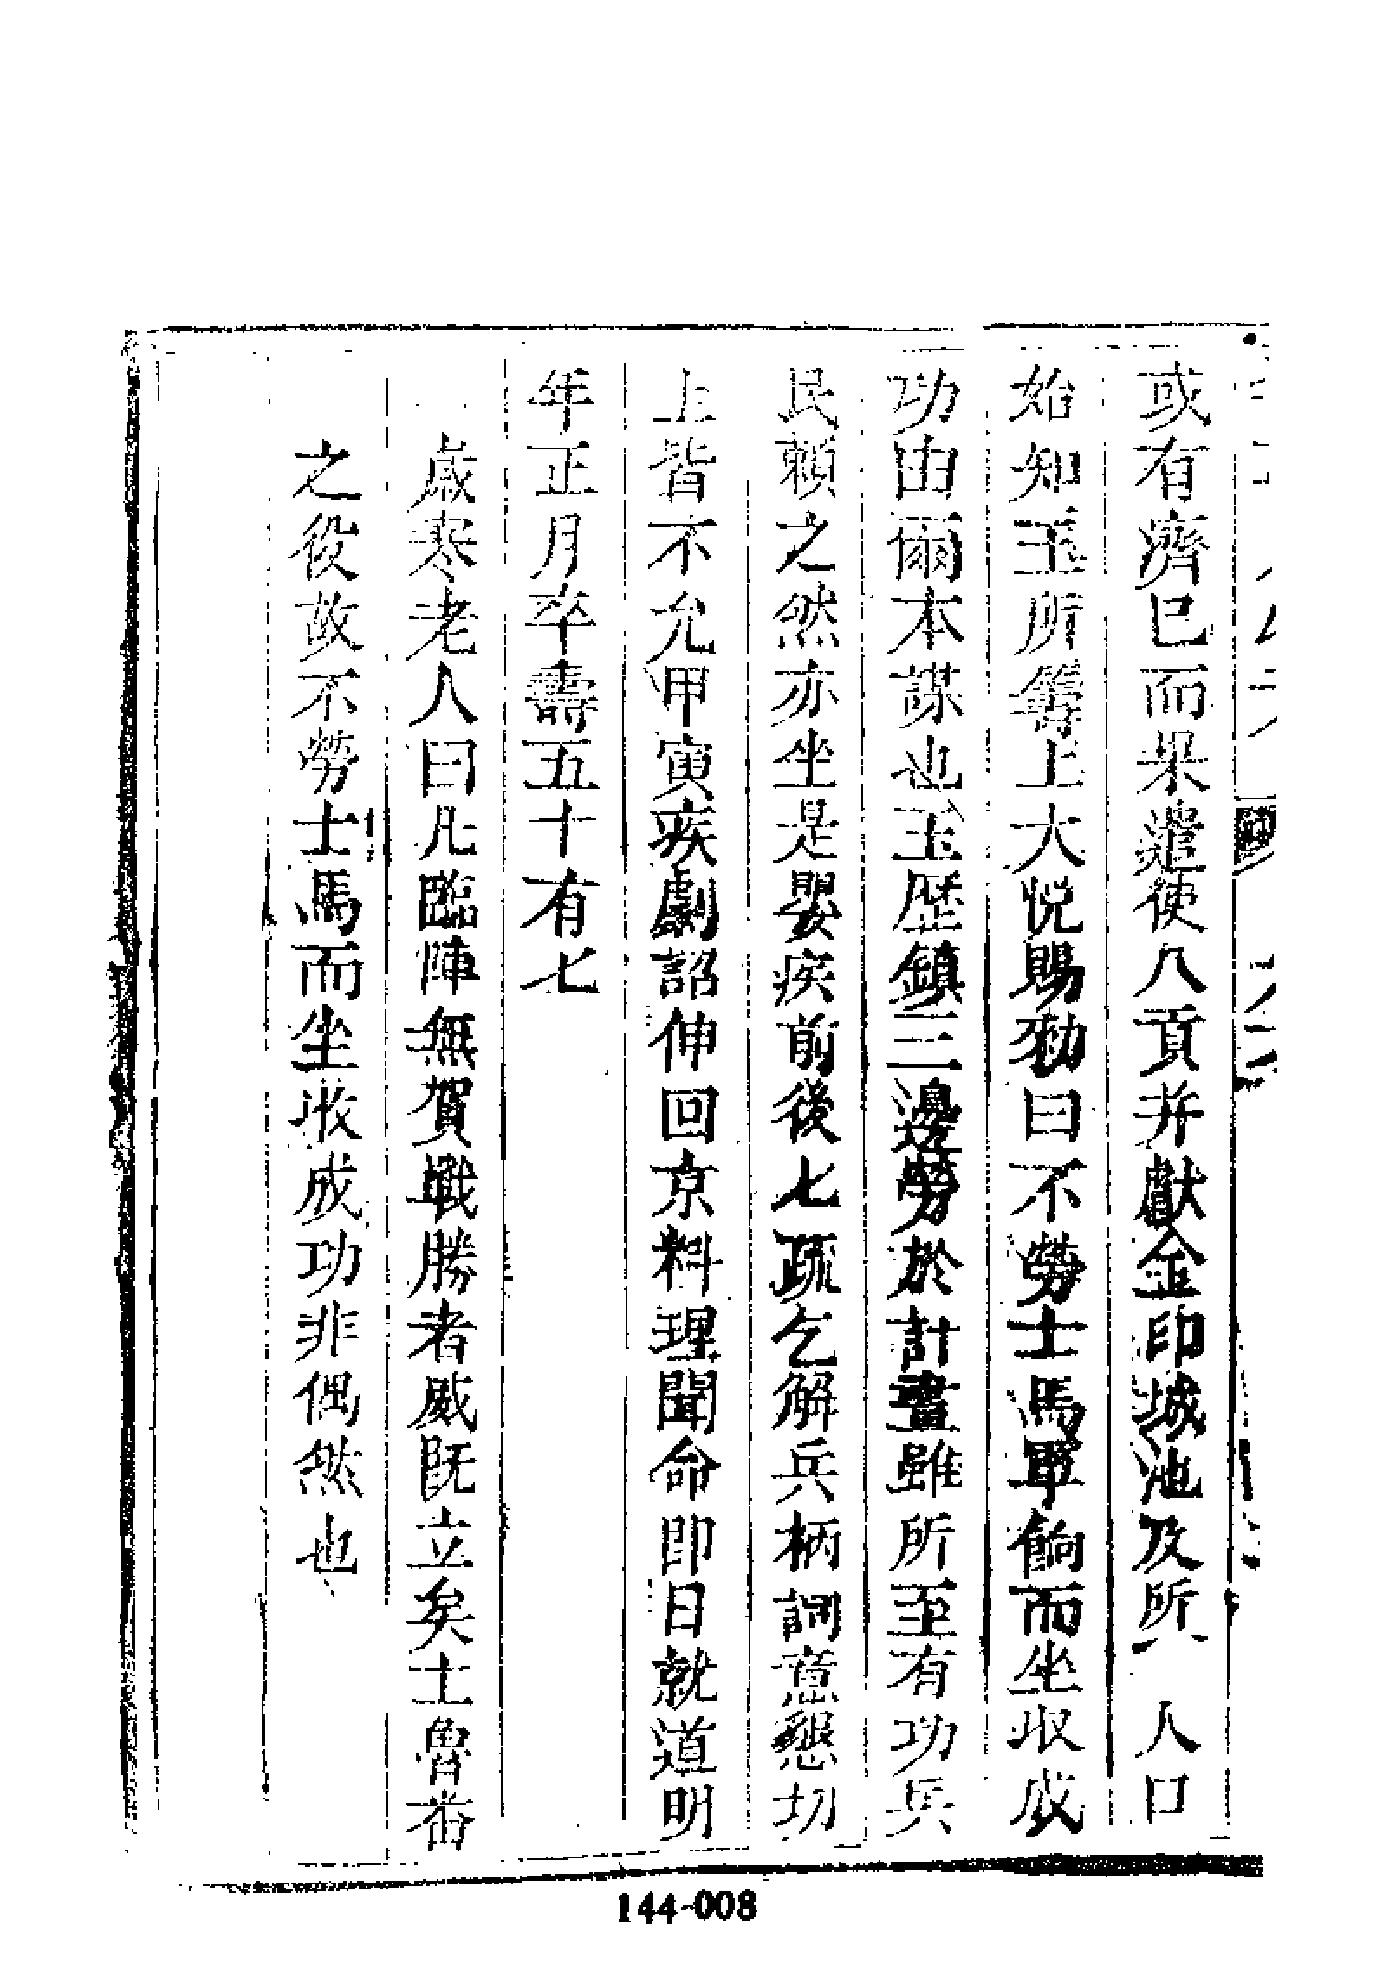 或有濟已而果遣使入貢并獻金印城池及所 人口
始知玉所籌上大悅賜勑曰不勞士馬軍餉而坐收成
功由爾本謀也玉歷鎮三邊勞於計畫雖所至有功兵
民賴之然亦坐是嬰疾前後七疏乞解兵柄詞意懇切
上皆不允甲寅疾劇詔伸回京料理聞命即日就道明
年正月卒壽五十有七
歲寒老人曰凡臨陣無賀戰勝者威既立矣土魯番
之役故不勞士馬而坐收成功非偶然也
144-008